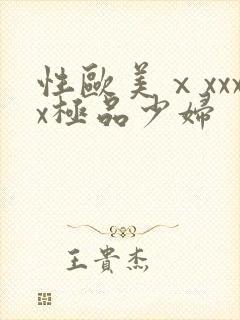 性歐美ⅹxxx
x極品少婦
王貴杰